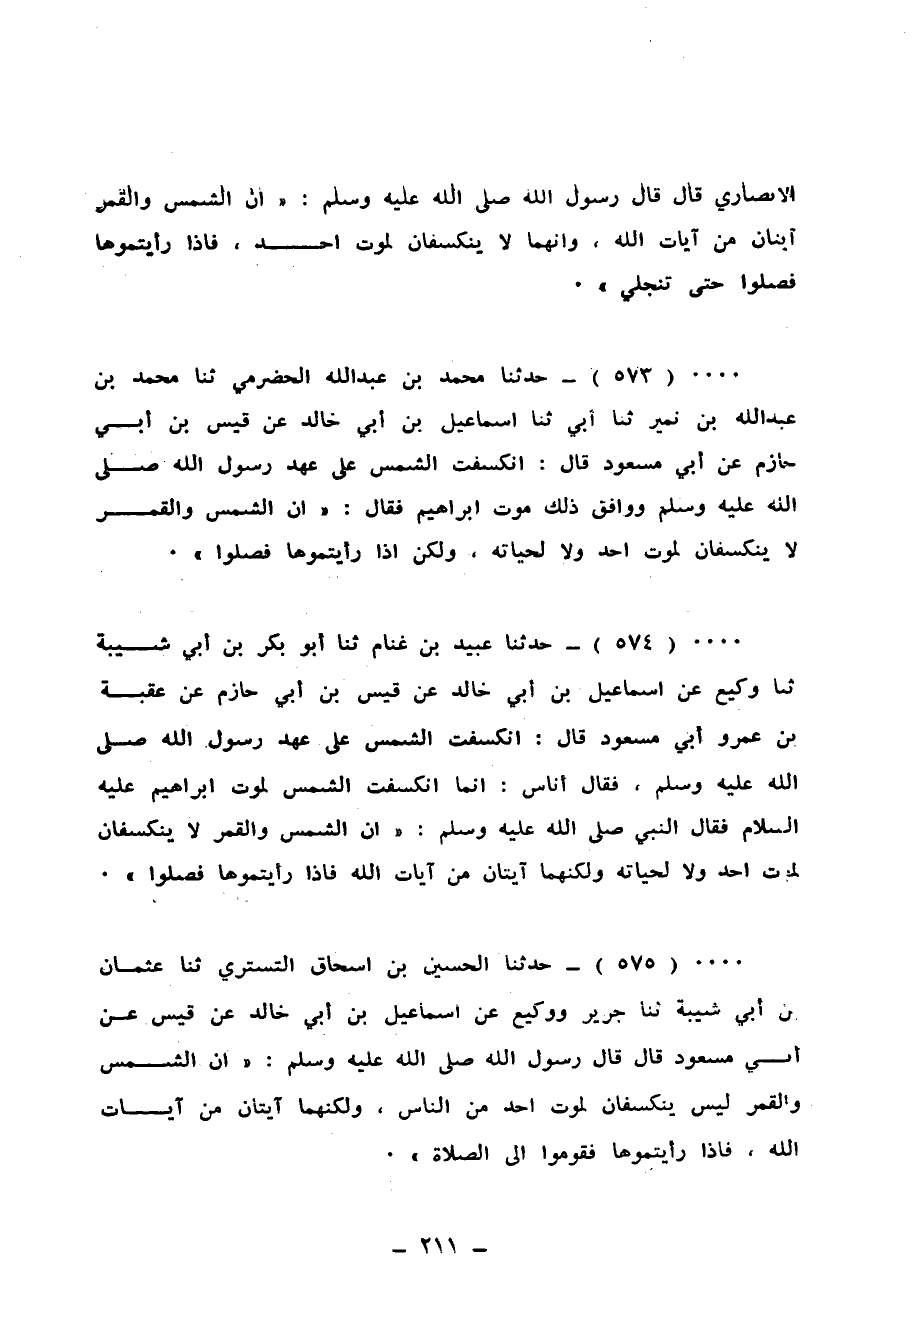 الانصاري قال قال رسول الله صلى الله عليه وسلم : « ان الشمس والقمر
آيتان من آيات الله ، وانهما لا ينكسفان لموت احـــد ، فاذا رأيتموها
فصلوا حتى تنجلي » ٠
٠٠٠٠ ( ٥٧٣ ) ــ حدثنا محمد بن عبدالله الحضرمي ثنا محمد بن
عبدالله بن نمير ثنا أبي ثنا اسماعيل بن أبي خالد عن قيس بن أبـــي
حازم عن أبي مسعود قال : انكسفت الشمس على عهد رسول الله صـــلى
الله عليه وسلم ووافق ذلك موت ابراهيم فقال : « ان الشمس والقمـــر
لا ينكسفان لموت احد ولا لحياته ، ولكن اذا رأيتموها فصلوا » ٠
٠٠٠٠ ( ٥٧٤ ) ــ حدثنا عبيد بن غنام ثنا أبو بكر بن أبي شـــيبة
ثنا وكيع عن اسماعيل بن أبي خالد عن قيس بن أبي حازم عن عقبـــة
بن عمرو أبي مسعود قال : انكسفت الشمس على عهد رسول الله صـــلى
الله عليه وسلم ، فقال أناس : انما انكسفت الشمس لموت ابراهيم عليه
السلام فقال النبي صلى الله عليه وسلم : « ان الشمس والقمر لا ينكسفان
لموت احد ولا لحياته ولكنهما آيتان من آيات الله فاذا رأيتموها فصلوا » ٠
٠٠٠٠ ( ٥٧٥ ) ــ حدثنا الحسين بن اسحاق التستري ثنا عثمـــان
بن أبي شيبة ثنا جرير ووكيع عن اسماعيل بن أبي خالد عن قيس عـــن
أبـــي مسعود قال قال رسول الله صلى الله عليه وسلم : « ان الشـــمس
والقمر ليس ينكسفان لموت احد من الناس ، ولكنهما آيتان من آيـــات
الله ، فاذا رأيتموها فقوموا الى الصلاة » ٠
ــ ٢١١ ــ